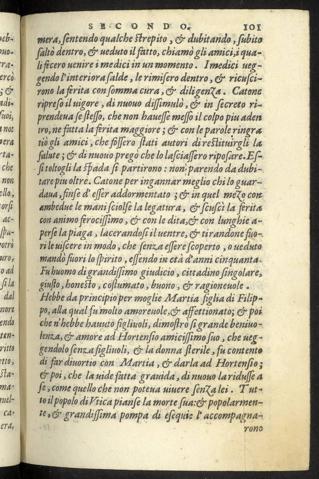 SECONDO. 101
mera, sentendo qualche strepito, & dubitando, subito
saltò dentro, & ueduto il fatto, chiamò gli amici, i qua-
li fecero uenire i medici in un momento. I medici ueg-
gendo l'interiora salde, le rimisero dentro, & ricusci-
rono la ferita con somma cura, & diligenza. Catone
ripreso il uigore, di nuouo dissimulò, & in secreto ri-
prendeua se stesso, che non hauesse messo il colpo piu aden
tro, ne fatta la ferita maggiore; & con le parole ringra
tiò gli amici, che fossero stati autori di restituirgli la
salute; & di nuouo pregò che lo lasciassero riposare. Es-
si toltogli la spada si partirono: non parendo da dubi-
tare piu oltre. Catone per ingannar meglio chi lo guar-
daua, finse d' esser addormentato; & in quel mezo con
ambedue le mani sciolse la legatura, & scuscì la ferita
con animo ferocissimo, & con le dita, & con lunghie a-
perse la piaga, lacerandosi il uentre, & tirandone fuo-
ri le uiscere in modo, che senza essere scoperto, o ueduto
mandò fuori lo spirito, essendo in età d'anni cinquanta.
Fu huomo di grandissimo giudicio, cittadino singolare,
giusto, honesto, costumato, buono, & ragioneuole.
Hebbe da principio per moglie Martia figlia di Filip-
po, alla qual fu molto amoreuole, & affettionato; & poi
che n'hebbe hauuto figliuoli, dimostro si grande beniuo-
lenza, & amore ad Hortensio amicissimo suo, che ueg-
gendolo senza figliuoli, & la donna sterile, fu contento
di far diuortio con Martia, & darla ad Hortensio;
& poi, che la uide fatta grauida, di nuouo la ridusse a
se, come quello che non poteua uiuere senza lei. Tut-
to il popolo di Vtica pianse la morte sua: & popolarmen-
te, & grandissima pompa di esequie l'accompagna-
rono